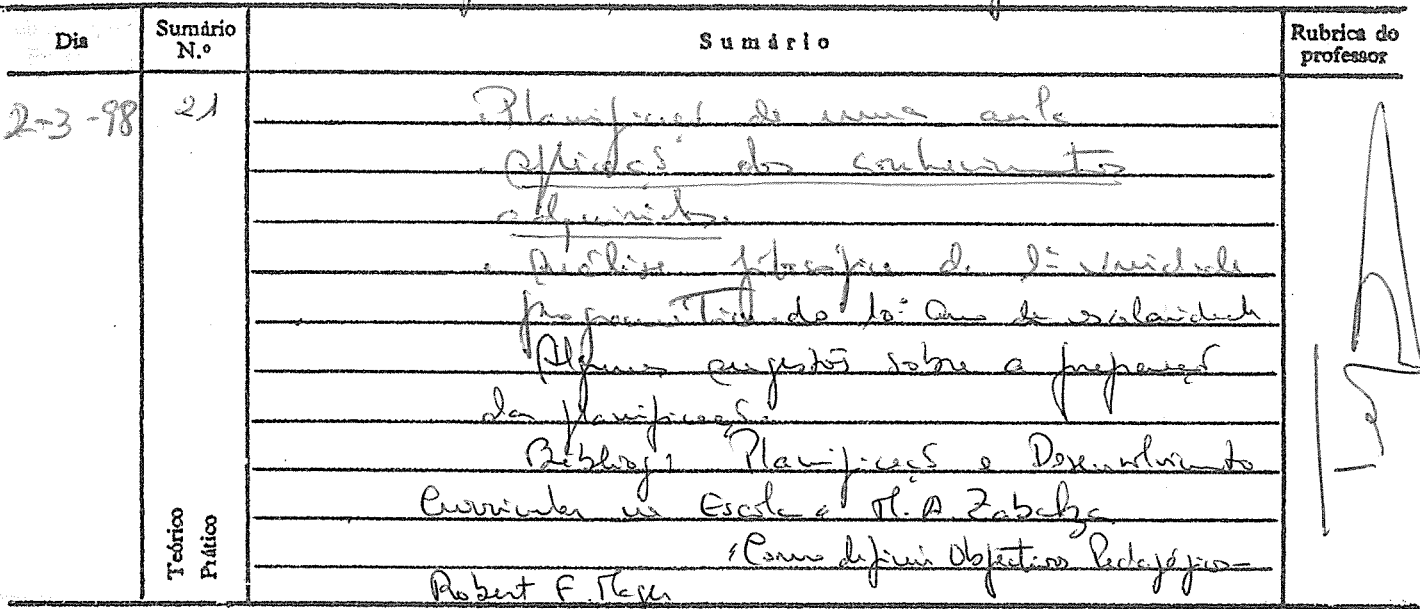 Dia Sumário N.º Sumário Rubrica do professor
2-3-98 21 Planificação de uma aula
. aplicação dos conhecimentos
adquiridos.
. Análise filosófica da 1ª unidade
programática do 10º Ano de escolaridade
Algumas sugestões sobre a preparação
das planificações.
Bibliog: Planificação e Desenvolvimento
Curricular na Escola M. A. Zabalza
Teórico Prático
"Como definir Objectivos Pedagógicos –
Robert F. Mager